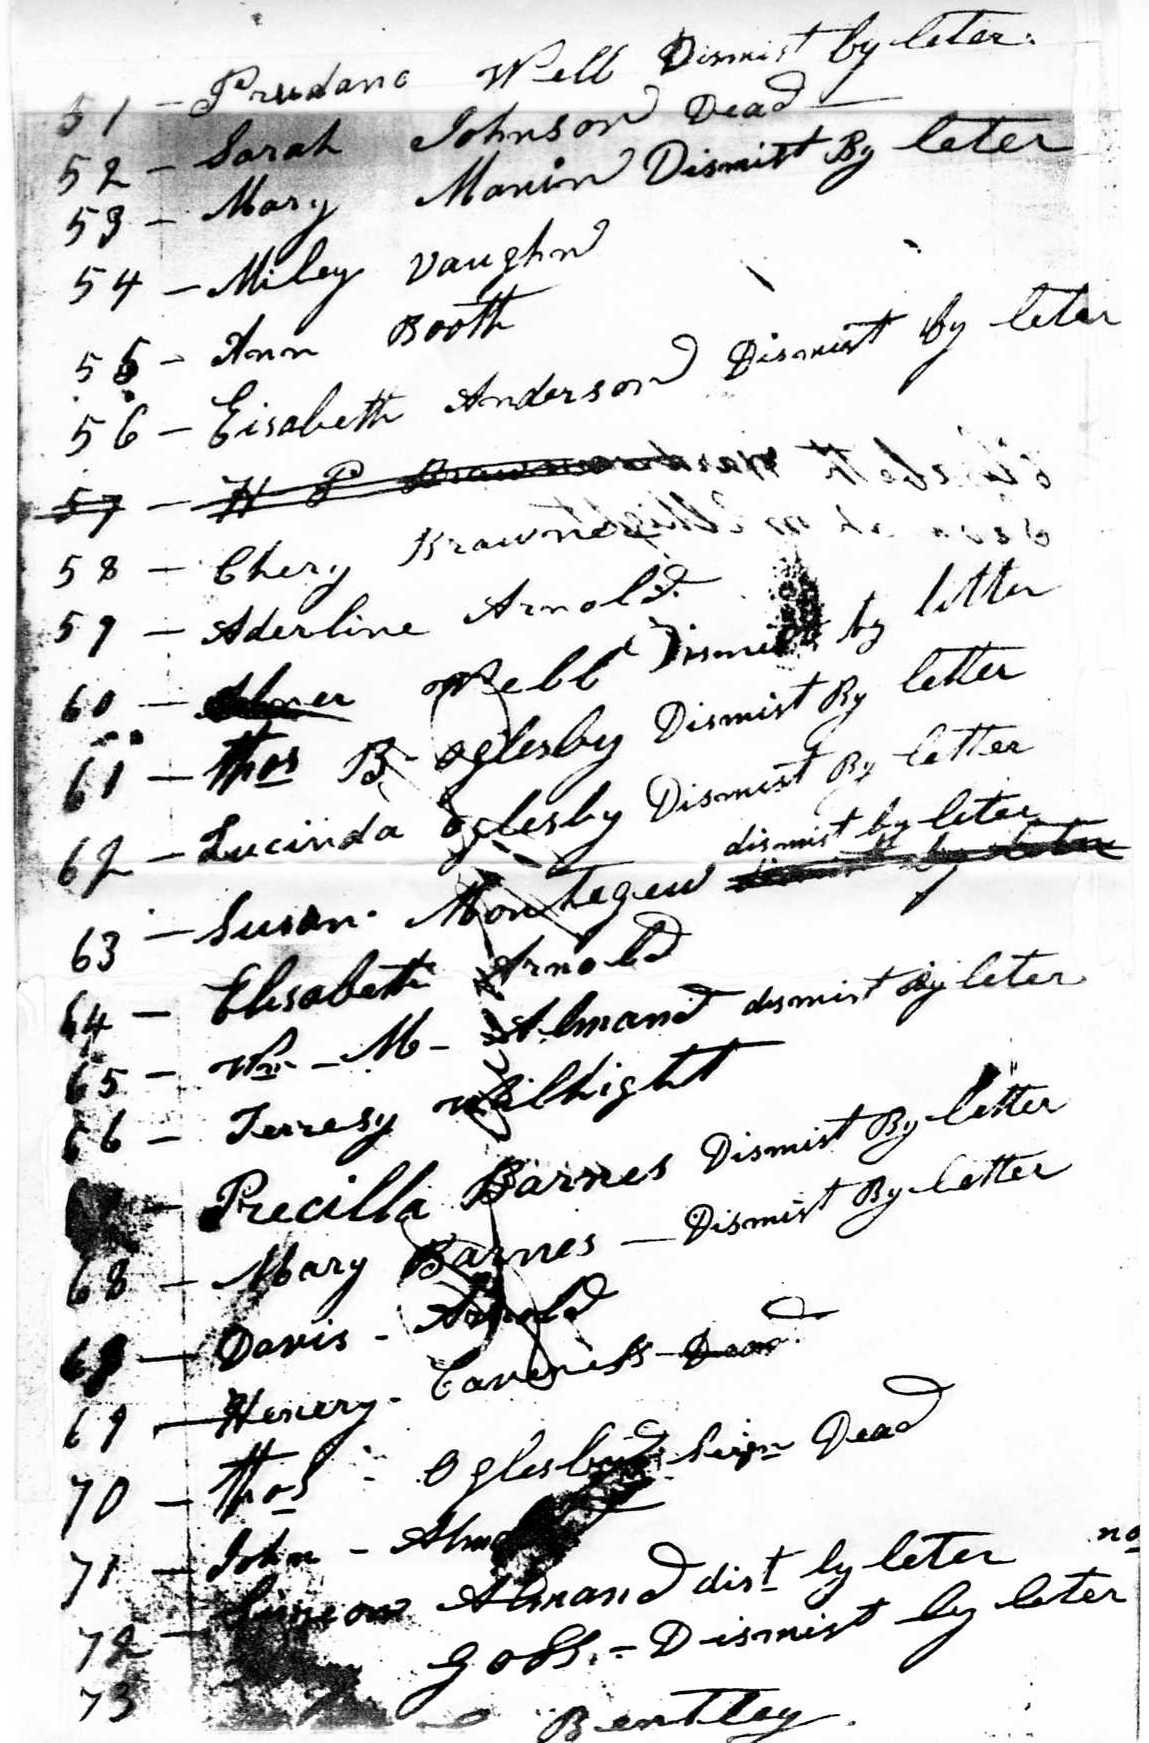 51 - Prudanc Well Dismist by leter.
52 - Sarah Johnson Dead
53 - Mary Manin Dismist By leter
54 - Miley Vaughn
55 - Ann Booth
56 - Eisabeth Anderson Dismist by leter
57 - H P
58 - Chery Krawner
59 - Aderline Arnold
60 - Abner Webb Dismist by letter
61 - Thos B- Oglesby Dismist By letter
62 - Lucinda Oglesby Dismist By letter
dismist by leter
63 - Susan Montegew dismist by leter
64 - Elisabeth Arnold
65 - Wm - M - Almand dismist By leter
66 - Terresy Wilhight
- Precilla Barnes Dismist By letter
68 - Mary Barnes - Dismist By letter
69 - Davis - Arnold
69 - Henery - Caveness Dead
70 - Thos - Oglesby Sign Dead
71 - John -
72 - Simeon Almand dist by leter no
73 Goss - Dismist by leter
Bentley